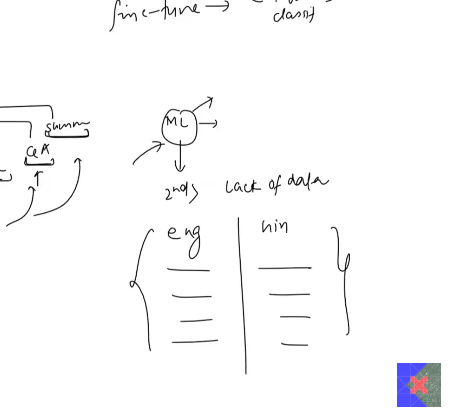 fine-tune →
classif
summ
Q&A
ML
2nd> Lack of data
eng hin